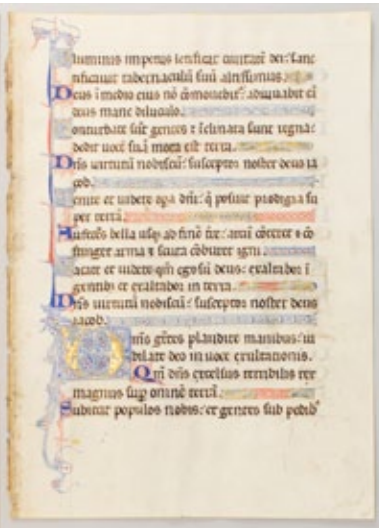 luminis impetus letificat civitatē dei: sanc
tificavit tabernaculū suū altissimus.
Deus ī medio eius nō cōmovebit᷑: adiuvabit eū
deus mane diluculo.
Conturbate sūt gentes ⁊ īclinata sunt regna:
dedit vocē suā mota est terra.
Dn̄s virtutū nobiscū: susceptor noster deus ia
cob.
Venite et videte opa dn̄i: q̄ posuit prodigia su
per terrā.
Auferēs bella usq; ad finē tr̄e: arcū cōteret ⁊ cō
fringet arma ⁊ scuta cōburet igni.
Vacate et videte qm̄ ego sū deus: exaltabor ī
gentibȝ et exaltabor in terra.
Dn̄s virtutū nobiscū: susceptor noster deus
iacob.
Omn̄s gētes plaudite manibus: iu
bilate deo in voce exultationis.
Qm̄ dn̄s excelsus terribilis rex
magnus sup omnē terrā.
Subiecit populos nobis: et gentes sub pedibȝ